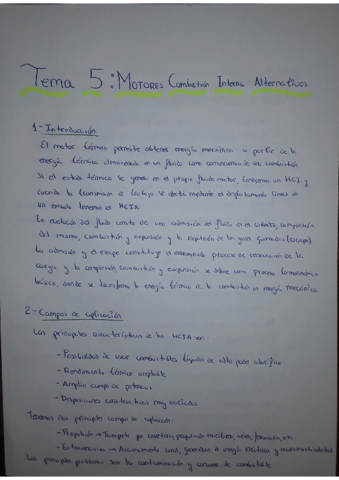 Tema 5: MOTORES Combustión Interna Alternativos
1- Introducción
El motor térmico permite obtener energía mecánica a partir de la
energía térmica almacenada en un fluido como consecuencia de una combustión
Si el estado térmico se genera en el propio fluido motor, tenemos un MCI y
cuando la transmisión de trabajo se efectúa mediante el desplazamiento lineal de
un émbolo tenemos el MCIA
La evolución del fluido consta de una admisión del fluido en el cilindro, compresión
del mismo, combustión y expansión y la expulsión de los gases quemados (escape)
La admisión y el escape constituye el denominado proceso de renovación de la
carga y la compresión combustión y expansión se define como proceso termodinámico
básico, donde se transforma la energía térmica de la combustión en energía mecánica
2- Campos de aplicación
Las principales características de los MCIA son:
- Posibilidad de usar combustibles líquidos de alto poder calorífico
- Rendimiento térmico aceptable
- Amplio campo de potencias
- Disposiciones constructivas muy variadas
Tenemos dos principales campos de aplicación:
- Propulsión → Transporte por carretera, propulsión marítima, aérea, ferrocarril, etc
- Estacionarios → Accionamiento rural, generadores de energía eléctrica y accionamiento industrial
Los principales problemas son la contaminación y consumo de combustible